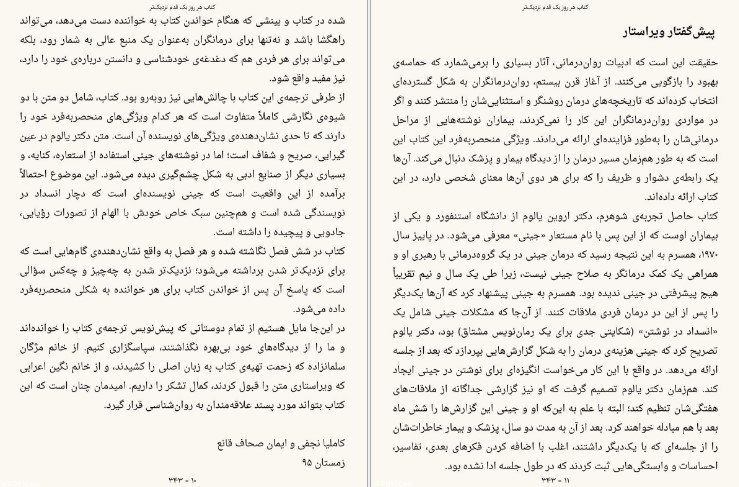 کتاب هر روز یک قدم نزدیک‌تر
شده در کتاب و بینشی که هنگام خواندن کتاب به خواننده دست می‌دهد، می‌تواند
راهگشا باشد و نه‌تنها برای درمانگران به‌عنوان یک منبع عالی به شمار رود، بلکه
می‌تواند برای هر فردی هم که دغدغه‌ی خودشناسی و دانستن درباره‌ی خود را دارد،
نیز مفید واقع شود.
از طرفی ترجمه‌ی این کتاب با چالش‌هایی نیز روبه‌رو بود. کتاب، شامل دو متن با دو
شیوه‌ی نگارشی کاملاً متفاوت است که هر کدام ویژگی‌های منحصربه‌فرد خود را
دارند که تا حدی نشان‌دهنده‌ی ویژگی‌های نویسنده آن است. متن دکتر یالوم در عین
گیرایی، صریح و شفاف است؛ اما در نوشته‌های جینی استفاده از استعاره، کنایه، و
بسیاری دیگر از صنایع ادبی به شکل چشم‌گیری دیده می‌شود. این موضوع احتمالاً
برآمده از این واقعیت است که جینی نویسنده‌ای است که دچار انسداد در
نویسندگی شده است و هم‌چنین سبک خاص خودش با الهام از تصورات رؤیایی،
جادویی و پیچیده را داشته است.
کتاب در شش فصل نگاشته شده و هر فصل به واقع نشان‌دهنده‌ی گام‌هایی است که
برای نزدیک‌تر شدن برداشته می‌شود؛ نزدیک‌تر شدن به چه‌چیز و چه‌کس سؤالی
است که پاسخ آن پس از خواندن کتاب برای هر خواننده به شکلی منحصربه‌فرد
داده می‌شود.
در این‌جا مایل هستیم از تمام دوستانی که پیش‌نویس ترجمه‌ی کتاب را خوانده‌اند
و ما را از دیدگاه‌های خود بی‌بهره نگذاشتند، سپاسگزاری کنیم. از خانم مژگان
سلمانزاده که زحمت تهیه‌ی کتاب به زبان اصلی را کشیدند، و از خانم نگین اعرابی
که ویراستاری متن را قبول کردند، کمال تشکر را داریم. امیدمان چنان است که این
کتاب بتواند مورد پسند علاقه‌مندان به روان‌شناسی قرار گیرد.
کاملیا نجفی و ایمان صحاف قانع
زمستان ۹۵
۱۰ = ۳۴۳
کتاب هر روز یک قدم نزدیک‌تر
پیش‌گفتار ویراستار
حقیقت این است که ادبیات روان‌درمانی، آثار بسیاری را برمی‌شمارد که حماسه‌ی
بهبود را بازگویی می‌کنند. از آغاز قرن بیستم، روان‌درمانگران به شکل گسترده‌ای
انتخاب کرده‌اند که تاریخچه‌های درمان روشنگر و استثنایی‌شان را منتشر کنند و اگر
در مواردی روان‌درمانگران این کار را نمی‌کردند، بیماران نوشته‌هایی از مراحل
درمانی‌شان را به‌طور فزاینده‌ای ارائه می‌دادند. ویژگی منحصربه‌فرد این کتاب این
است که به طور هم‌زمان مسیر درمان را از دیدگاه بیمار و پزشک دنبال می‌کند. آن‌ها
یک رابطه‌ی دشوار و ظریف را که برای هر دوی آن‌ها معنای شخصی دارد، در این
کتاب ارائه داده‌اند.
کتاب حاصل تجربه‌ی شوهرم، دکتر اروین یالوم از دانشگاه استنفورد و یکی از
بیماران اوست که از این پس با نام مستعار «جینی» معرفی می‌شود. در پاییز سال
۱۹۷۰، همسرم به این نتیجه رسید که درمان جینی در یک گروه‌درمانی با رهبری او و
همراهی یک کمک درمانگر به صلاح جینی نیست، زیرا طی یک سال و نیم تقریباً
هیچ پیشرفتی در جینی ندیده بود. همسرم به جینی پیشنهاد کرد که آن‌ها یک‌دیگر
را پس از این در درمان فردی ملاقات کنند. از آن‌جا که مشکلات جینی شامل یک
«انسداد در نوشتن» (شکایتی جدی برای یک رمان‌نویس مشتاق) بود، دکتر یالوم
تصریح کرد که جینی هزینه‌ی درمان را به شکل گزارش‌هایی بپردازد که بعد از جلسه
ارائه می‌دهد. در واقع با این کار می‌خواست انگیزه‌ای برای نوشتن در جینی ایجاد
کند. هم‌زمان دکتر یالوم تصمیم گرفت که او نیز گزارشی جداگانه از ملاقات‌های
هفتگی‌شان تنظیم کند؛ البته با علم به این‌که او و جینی این گزارش‌ها را شش ماه
بعد با هم مبادله خواهند کرد. بعد از آن به مدت دو سال، پزشک و بیمار خاطرات‌شان
را از جلسه‌ای که با یک‌دیگر داشتند، اغلب با اضافه کردن فکرهای بعدی، تفاسیر،
احساسات و وابستگی‌هایی ثبت کردند که در طول جلسه ادا نشده بود.
۱۱ = ۳۴۳